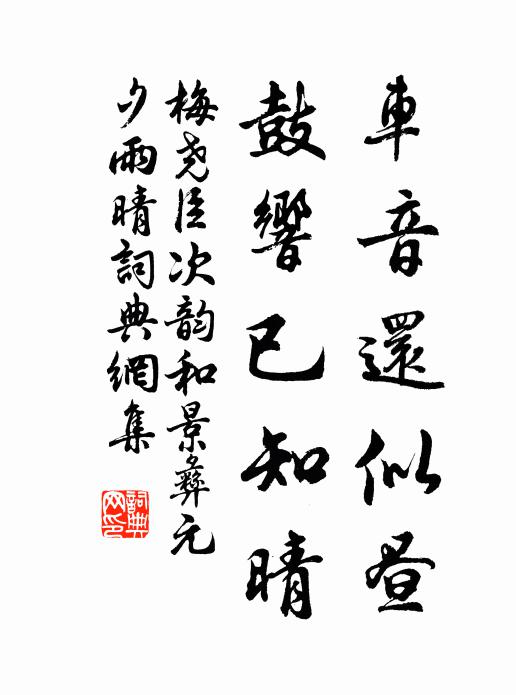 車音還似昼
鼓響已知晴
梅尧臣次韵和景彝元
夕雨晴詞典網集
詞典網印